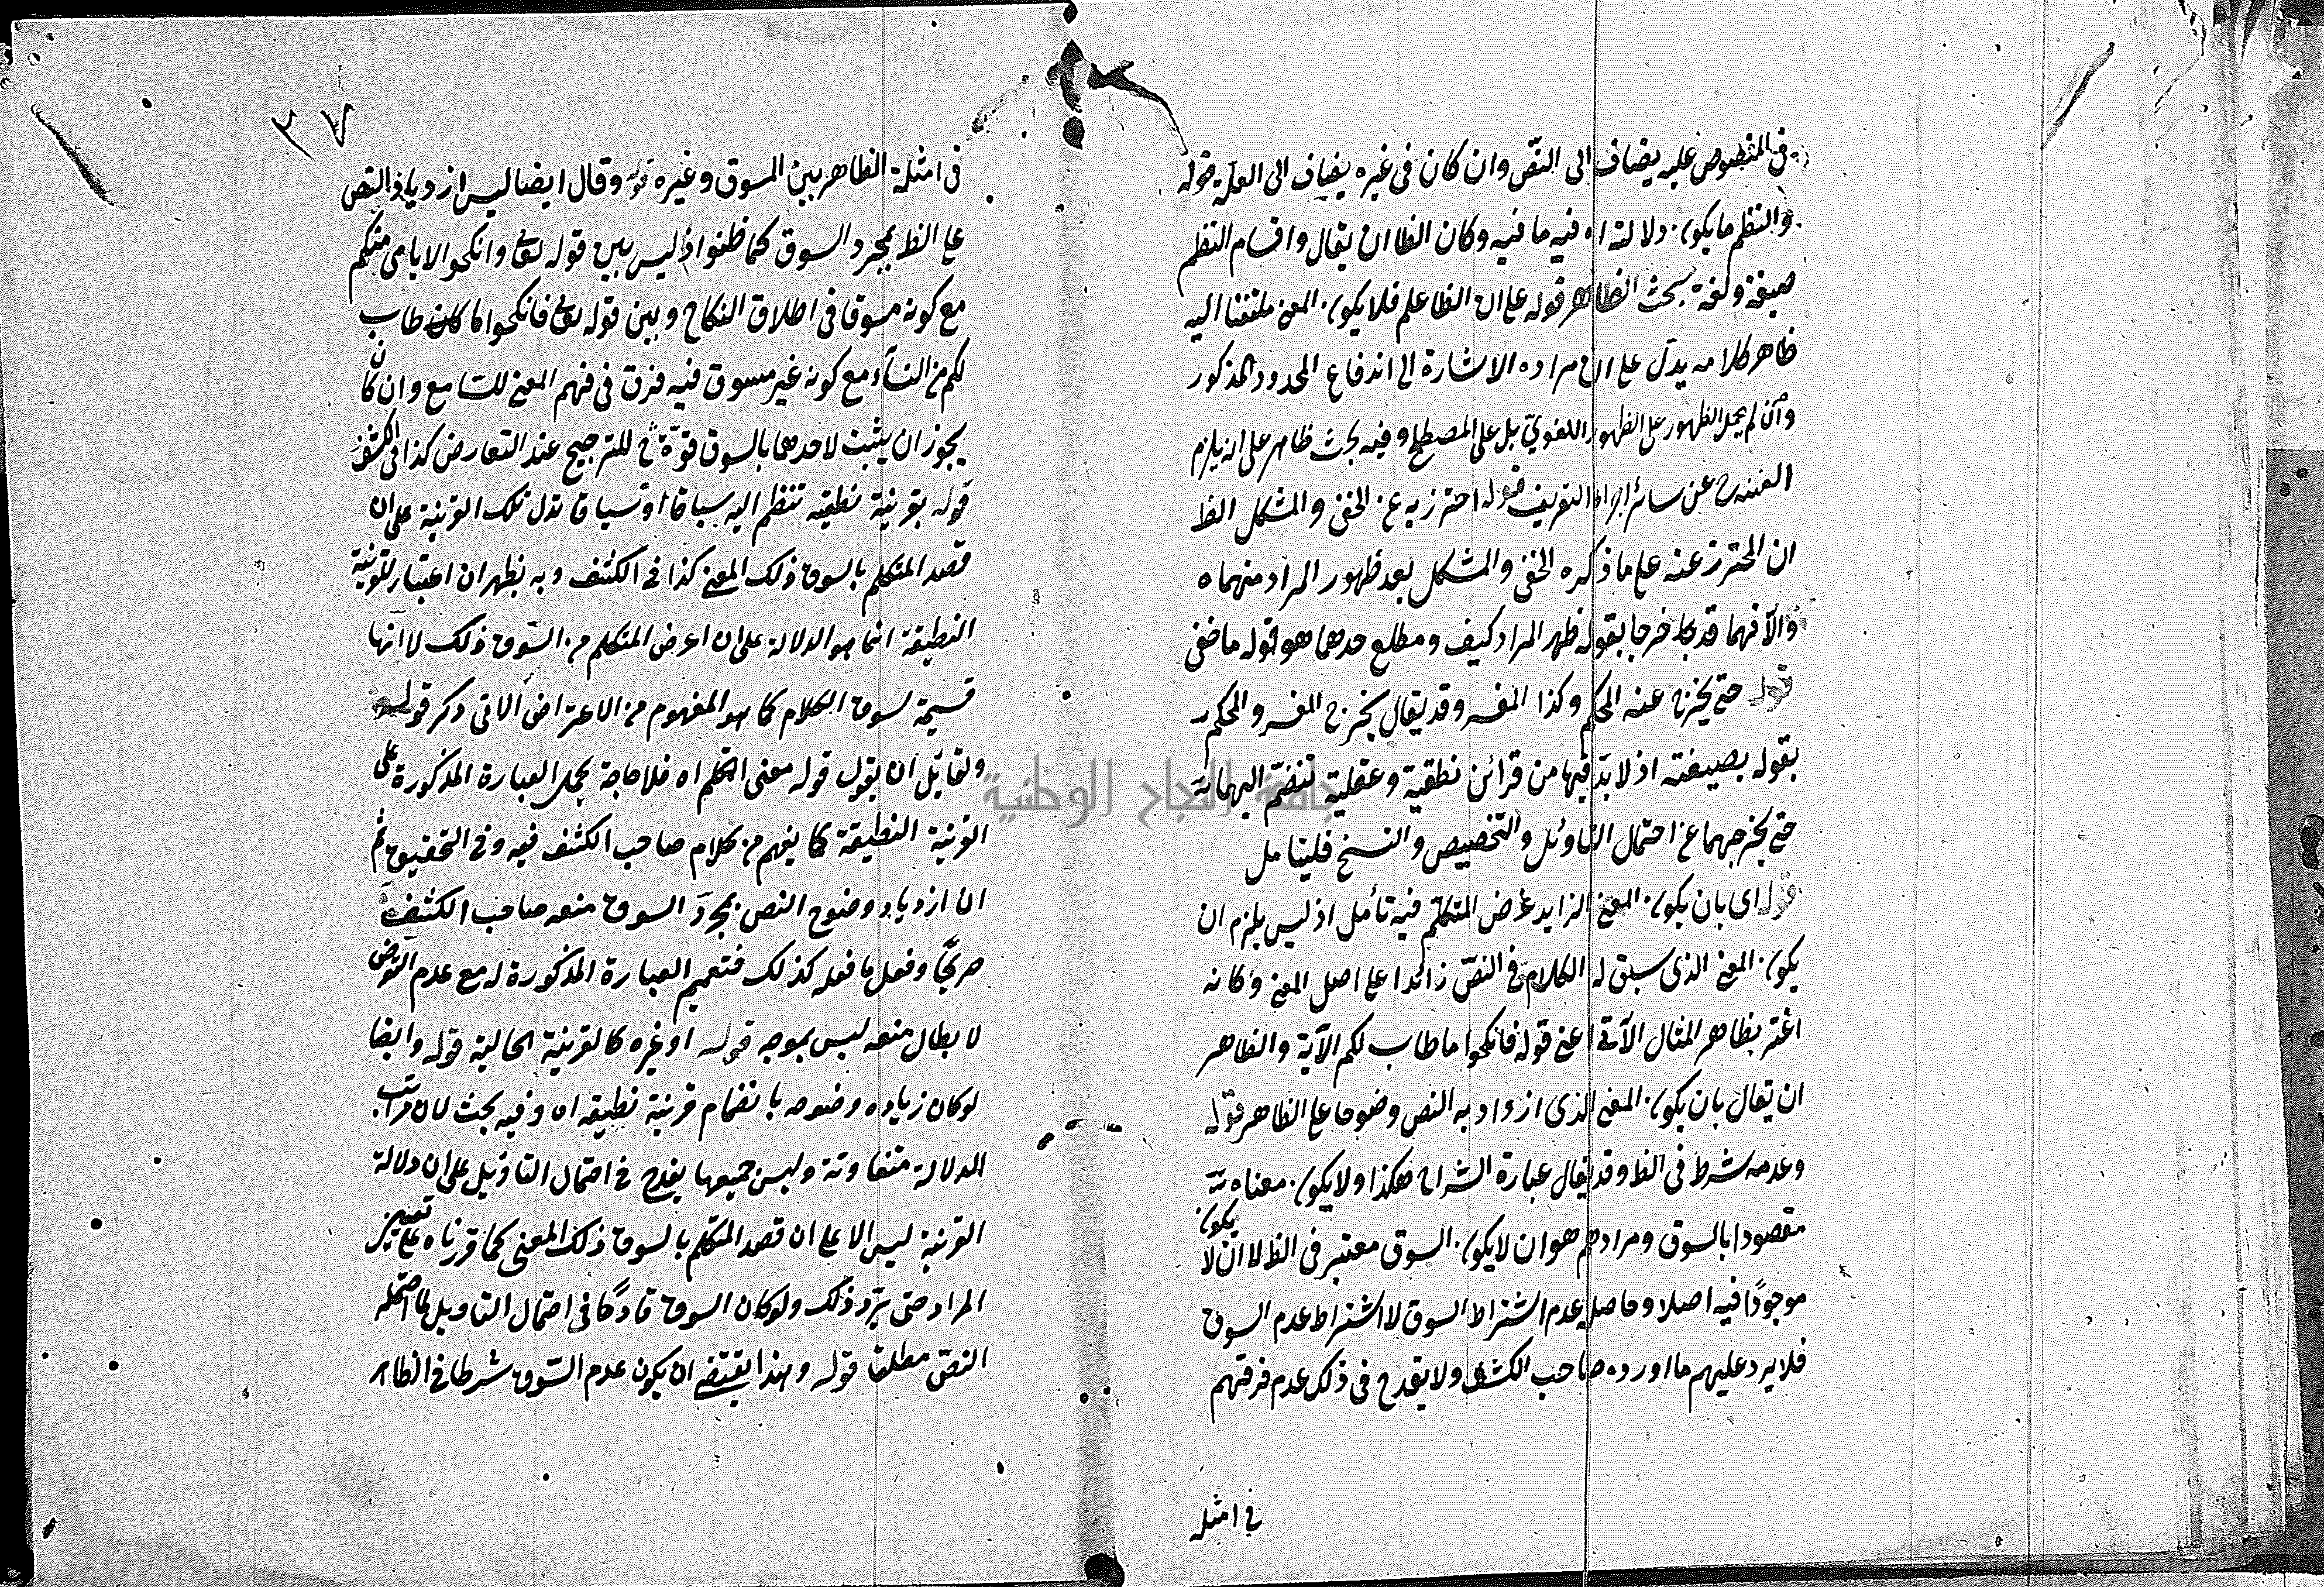 في المنصوص عليه يضاف الى النصّ وان كان في غيره يضاف الى العلة قوله
والنظم ما يكون دلالته اه فيه ما فيه وكان الظا ان يقال واقسام النظم
صيغة ولغة بحث الظاهر قوله على ان الظا علم فلا يكون المعنى ملتفتا اليه
ظاهر كلامه يدلّ على ان مراده الاشارة الى اندفاع المحدود المذكور
وان لم يحمل الظهور على الظهور اللغويّ بل على المصطلح وفيه بحث ظاهر على انه يلزم
عن سائر التعريف قوله احترز به عن الخفي والمشكل الظ
ان المحترز عنه على ما ذكره الخفي والمشكل بعد ظهور المراد منهما ه
والّا فهما قد خرجا بقوله ظهر المراد كيف ومطلع حدهما هو قوله ما خفى
قوله حتى يخرج عنه المحكم وكذا المفسر وقد يقال يخرج المفسر والمحكم
بقوله بصيغته اذ لا بدّ فيها من قرائن نطقية وعقلية تنضمّ اليهما
حتى يخرجهما عن احتمال التاويل والتخصيص والنسخ فليتامل
قوله اى بان يكون المعنى الزايد غرض المتكلّم فيه تأمل اذ ليس يلزم ان
يكون المعنى الذى سبق له الكلام في النصّ زائدا على اصل المعنى وكانه
اغتر بظاهر المثال الآتى اعنى قوله فانكحوا ما طاب لكم الآية والظاهر
ان يقال بان يكون المعنى الذى ازداد به النص وضوحا على الظاهر قوله
وعدمه شرط فى الظ وقد يقال عبارة الشراح هكذا ولا يكون معناه
مقصودا بالسوق ومرادهم هو ان لا يكون السوق معتبر فى الظ لا ان لا يكون
موجودًا فيه اصلا وحاصله عدم اشتراط السوق لا اشتراط عدم السوق
فلا يرد عليهم ما اورده صاحب الكشف ولا يقدح فى ذلك عدم فرقهم
في امثله
٣٧
فى امثلة الظاهر بين المسوق وغيره قوله وقال ايضا ليس ازدياد النص
على الظ بمجرد السوق كما ظنوا اذ ليس بين قوله تعالى وانكحوا الايامى منكم
مع كونه مسوقا فى اطلاق النكاح وبين قوله تعالى فانكحوا ما كان طاب
لكم من النسآء مع كونه غير مسوق فيه فرق فى فهم المعنى للسامع وان كان
يجوز ان يثبت لاحدهما بالسوق قوّة للترجيح عند التعارض كذا فى الكشف
قوله بقرينة نطقية تنظم اليه سباقا او سياقا تدل تلك القرينة على ان
قصد المتكلم بالسوق ذلك المعنى كذا فى الكشف وبه يظهر ان اعتبار القرينة
النطيقة انما هو الدلالة على ان غرض المتكلم من السّوق ذلك لا انها
قسيمة لسوق الكلام كما هو المفهوم من الاعتراض الاتى ذكر قوله
ولقائل ان يقول قوله معنى التكلم اه فلا حاجة بحمل العبارة المذكورة على
القرنية النطيقة كما يفهم من كلام صاحب الكشف فيه وفى التحقيق ثم
ان ازدياد وضوح النص بمجرّد السوق منعه صاحب الكشف
صريحًا وفعل ما فعله كذلك فتعميم العبارة المذكورة له مع عدم التعرض
لابطال منعه ليس بموجه قوله او غيره كالقرنية الحالية قوله وايضا
لو كان زياده وضوحه بانضمام قرينة نطيقه اه وفيه بحث لان مراتب
الدلالة متفاوتة وليس جميعها يقدح فى احتمال التاؤيل على ان دلالة
القرنية ليس الا على ان قصد المتكلّم بالسوق ذلك المعنى كما قررناه على تعيين
المراد حتى يرّد ذلك ولو كان السوق قادحًا فى احتمال التاويل لما احتمله
النصّ مطلقا قوله وهذا يقتضى ان يكون عدم السّوق شرطا فى الظاهر
جامعة النجاح الوطنية